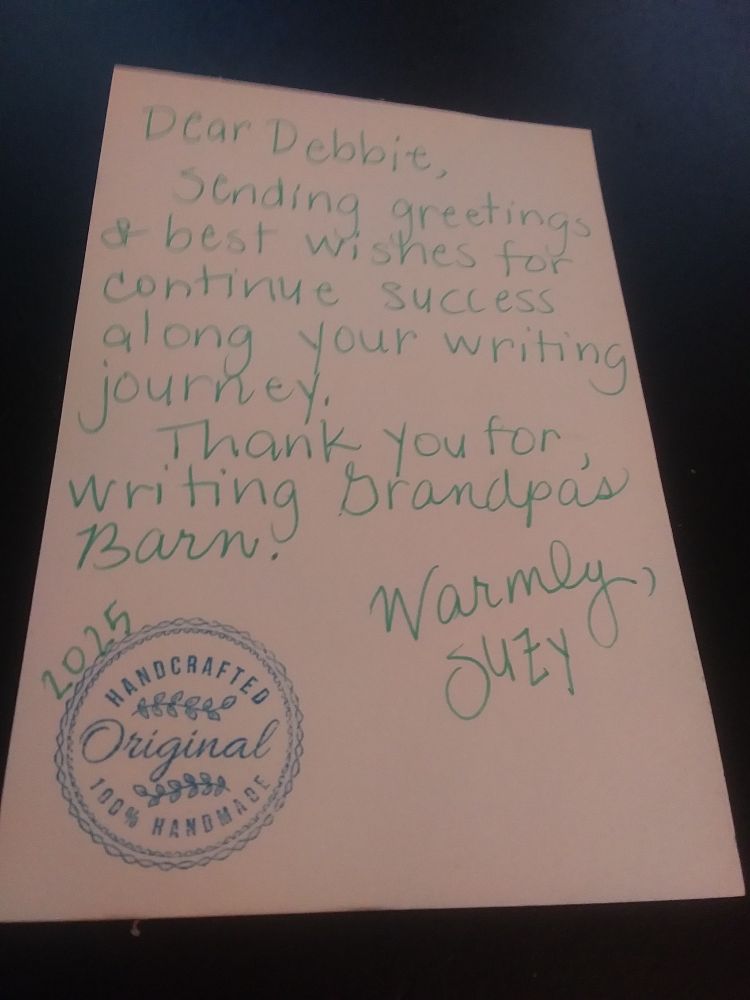 Dear Debbie,
Sending greetings
& best wishes for
continue success
along your writing
journey.
Thank you for
writing Grandpa's
Barn!
Warmly,
Suzy
2025
HANDCRAFTED
Original
100% HANDMADE